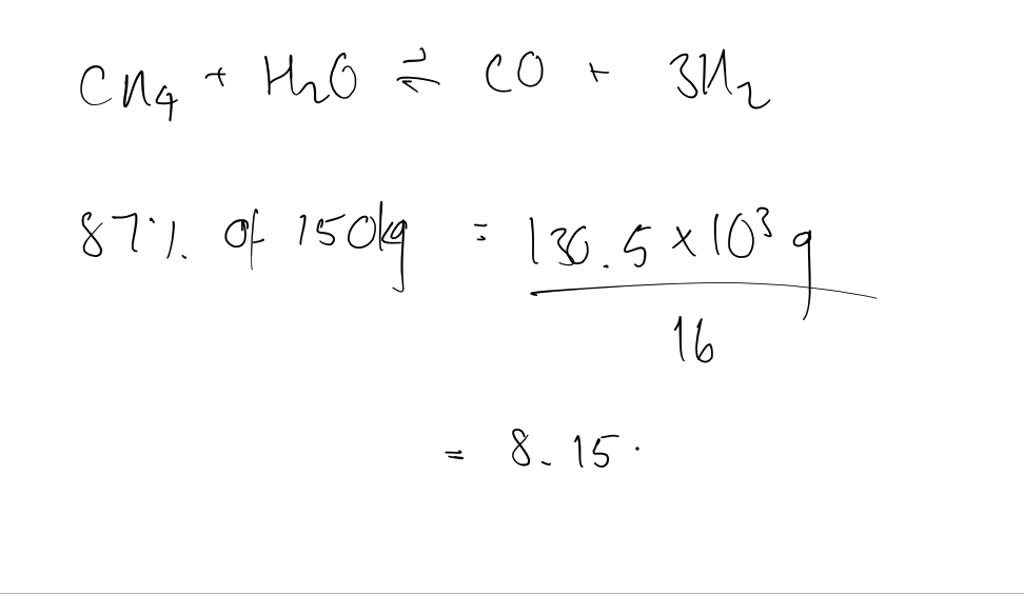 CH₄ + H₂O ⇌ CO + 3H₂
87% of 150kg = 130.5 × 10³ g
16
= 8.15.